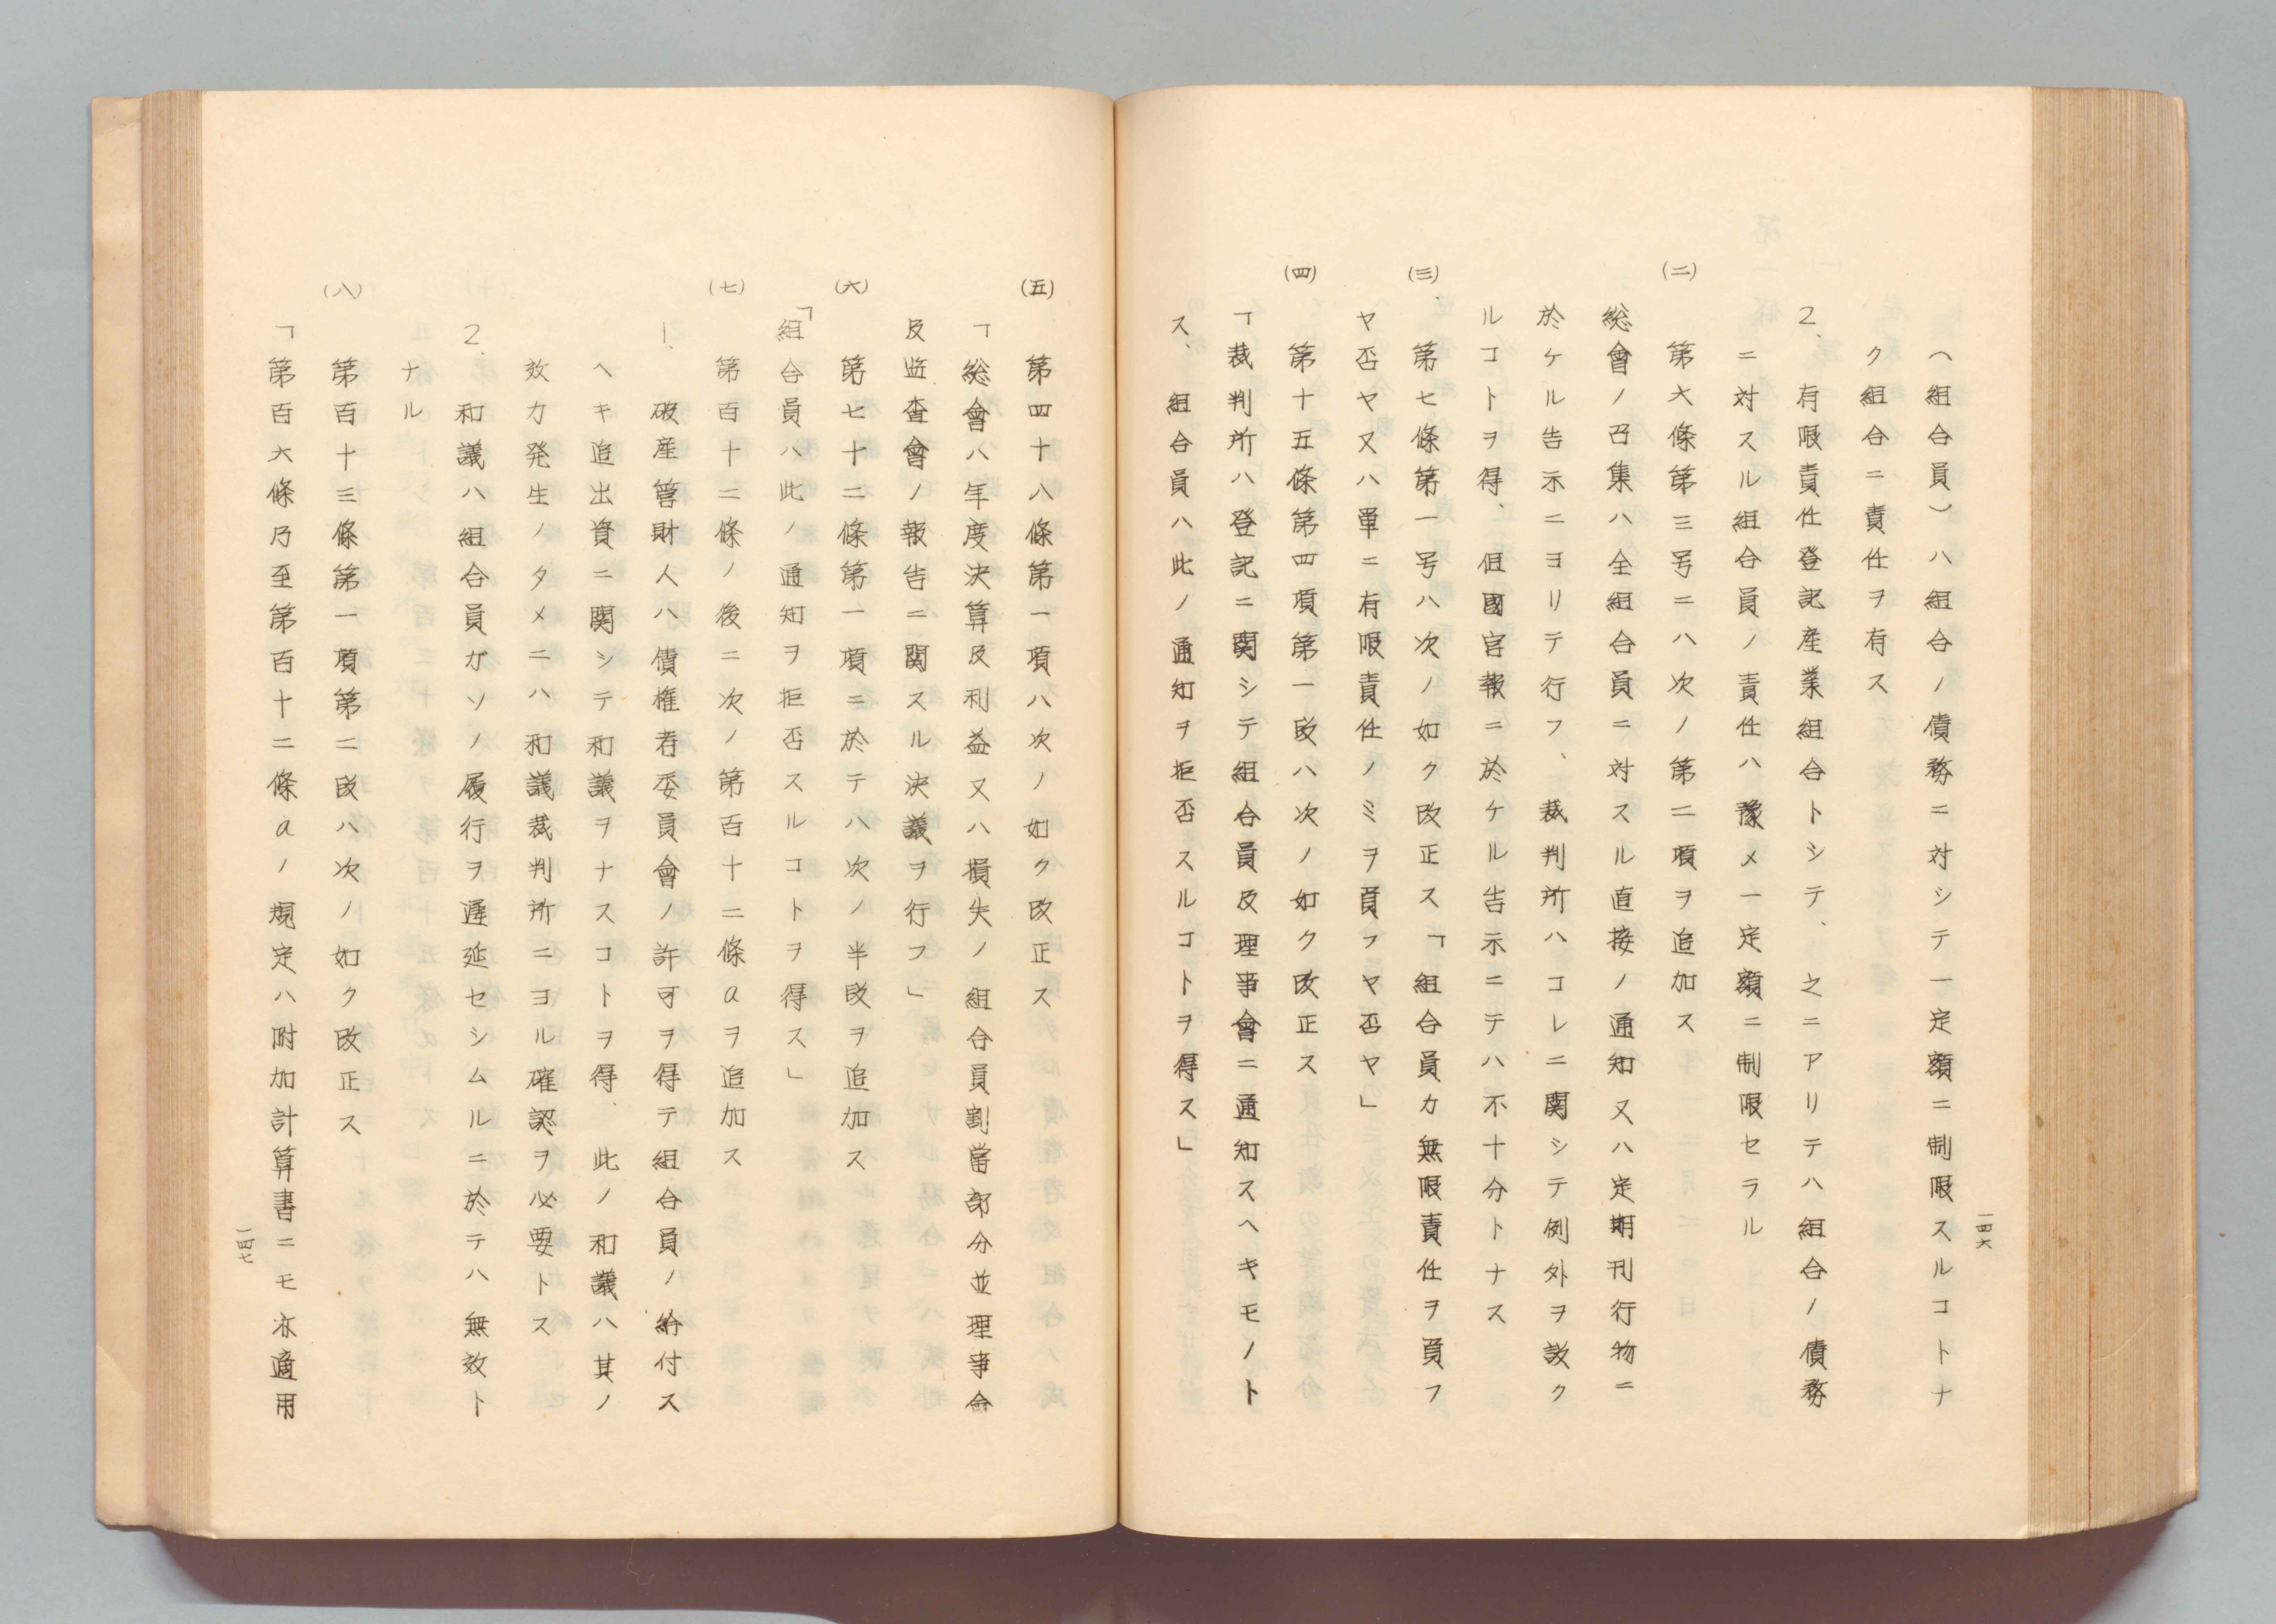 （組合員）ハ組合ノ債務ニ対シテ一定額ニ制限スルコトナ
ク組合ニ責任ヲ有ス
2、有限責任登記産業組合トシテ、之ニアリテハ組合ノ債務
ニ対スル組合員ノ責任ハ豫メ一定額ニ制限セラル
(二) 第六條第三号ニハ次ノ第二項ヲ追加ス
総會ノ召集ハ全組合員ニ対スル直接ノ通知又ハ定期刊行物ニ
於ケル告示ニヨリテ行フ、裁判所ハコレニ関シテ例外ヲ設ク
ルコトヲ得、但國官報ニ於ケル告示ニテハ不十分トナス
(三) 第七條第一号ハ次ノ如ク改正ス「組合員カ無限責任ヲ負フ
ヤ否ヤ又ハ単ニ有限責任ノミヲ負フヤ否ヤ」
(四) 第十五條第四項第一段ハ次ノ如ク改正ス
「裁判所ハ登記ニ関シテ組合員及理事會ニ通知スヘキモノト
ス、組合員ハ此ノ通知ヲ拒否スルコトヲ得ス」
一四六
(五) 第四十八條第一項ハ次ノ如ク改正ス
「総會ハ年度決算及利益又ハ損失ノ組合員割當部分並理事會
及監査會ノ報告ニ関スル決議ヲ行フ」
(六) 第七十二條第一項ニ於テハ次ノ半段ヲ追加ス
「組合員ハ此ノ通知ヲ拒否スルコトヲ得ス」
(七) 第百十二條ノ後ニ次ノ第百十二條aヲ追加ス
1、破産管財人ハ債権者委員會ノ許可ヲ得テ組合員ノ給付ス
ヘキ追出資ニ関シテ和議ヲナスコトヲ得、此ノ和議ハ其ノ
效力発生ノタメニハ和議裁判所ニヨル確認ヲ必要トス
2、和議ハ組合員ガソノ履行ヲ遅延セシムルニ於テハ無效ト
ナル
(八) 第百十三條第一項第二段ハ次ノ如ク改正ス
「第百六條乃至第百十二條aノ規定ハ附加計算書ニモ亦適用
一四七